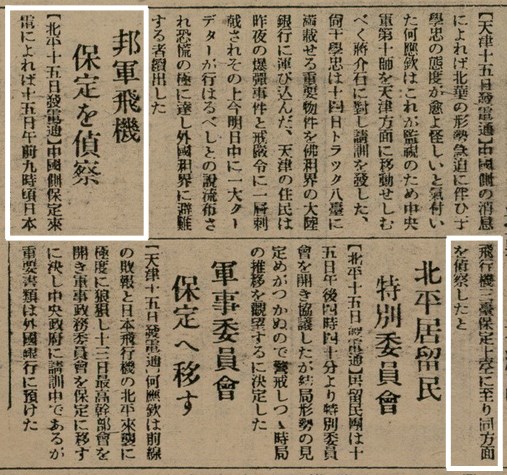 【天津十五日發電通】中國側の消息
によれば北華の形勢急迫に伴ひ于
學忠の態度が愈よ怪しいと氣付い
た何應欽はこれが監視のため中央
軍第十師を天津方面に移動せしむ
べく蔣介石に對し請訓を發した、
尙于學忠は十四日トラック八臺に
滿載せる重要物件を佛租界の大陸
銀行に運び込んだ、天津の住民は
昨夜の爆彈事件と戒嚴令に一層刺
戟されその上今明日中に一大クー
デターが行はるべしとの說流布さ
れ恐慌の極に達し外國租界に避難
する者續出した
邦軍飛機
保定を偵察
【北平十五日發電通】中國側保定來
電によれば十五日午前九時頃日本
飛行機三臺保定上空に至り同方面
を偵察したと
北平居留民
特別委員會
【北平十五日發電通】居留民團は十
五日午後四時四十分より特別委員
會を開き協議したが結局形勢の見
定めがつかぬので警戒しつゝ時局
の推移を觀望するに決定した
軍事委員會
保定へ移す
【天津十五日發電通】何應欽は前線
の敗報と日本飛行機の北平來襲に
極度に狼狽し十三日最高幹部會を
開き軍事政務委員會を保定に移す
に決し中央政府に請訓中であるが
重要書類は外國銀行に預けた